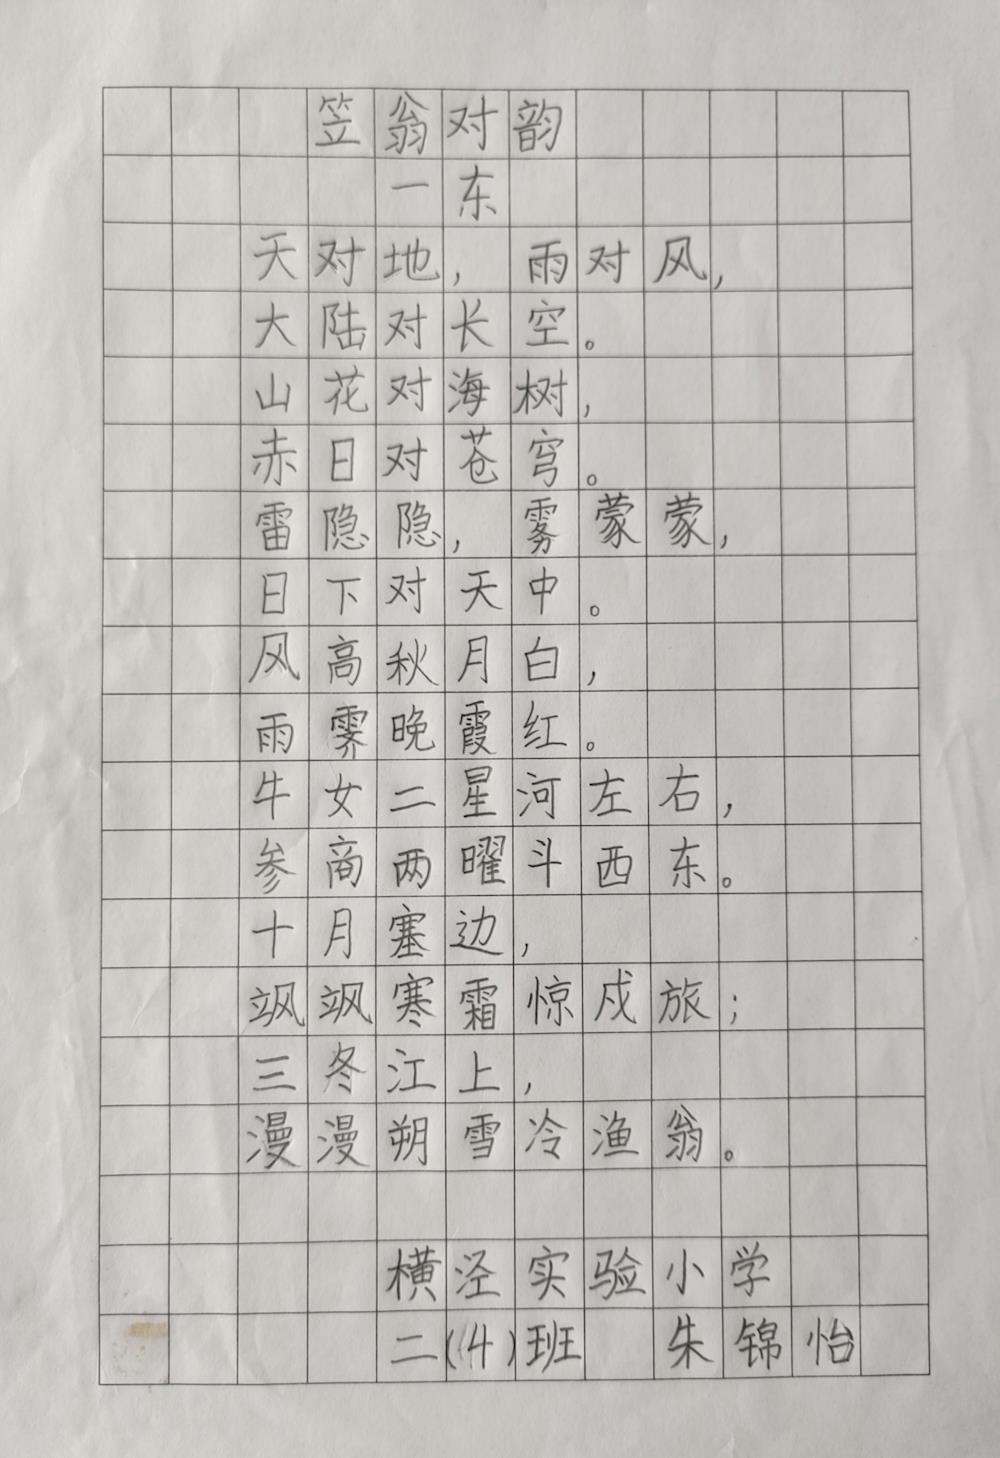 笠翁对韵
一东
天对地，雨对风，
大陆对长空。
山花对海树，
赤日对苍穹。
雷隐隐，雾蒙蒙，
日下对天中。
风高秋月白，
雨霁晚霞红。
牛女二星河左右，
参商两曜斗西东。
十月塞边，
飒飒寒霜惊戍旅；
三冬江上，
漫漫朔雪冷渔翁。
横泾实验小学
二(4)班 朱锦怡